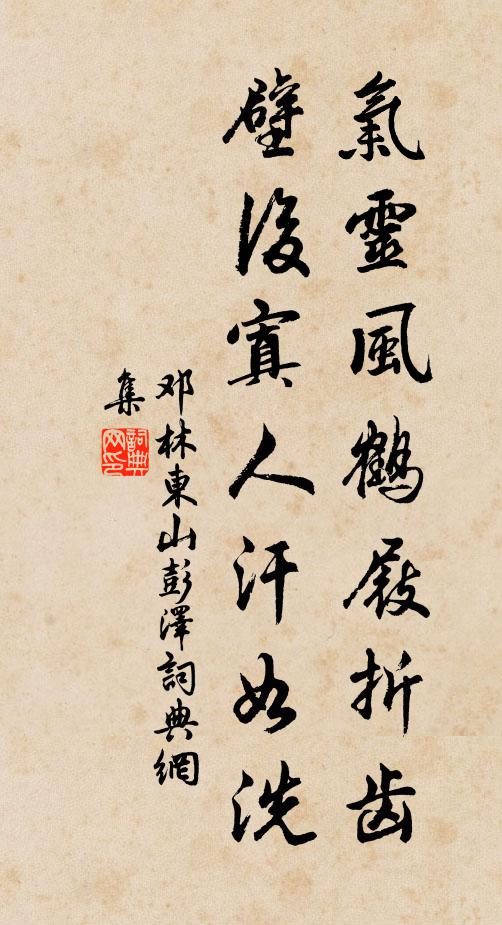 氣靈風鶴屐折齒
壁後寘人汗如洗
邓林東山彭澤詞典網
集
詞典網印